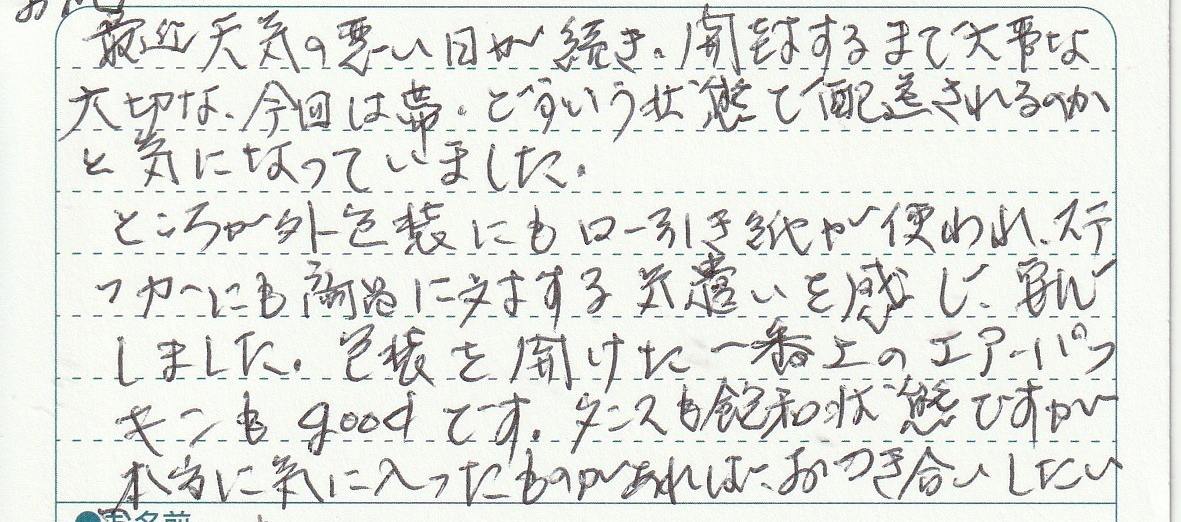 最近天気の悪い日が続き、開封するまで大事な
大切な、今回は帯、どういう状態で配送されるのか
と気になっていました。
ところが外包装にもロー引き紙が使われ、ステ
ッカーにも商品に対する気遣いを感じ、安心
しました。包装を開けた一番上のエアーパッ
キンもgoodです。タンスも飽和状態ですが
本当に気に入ったものがあれば、おつき合いしたい
お名前